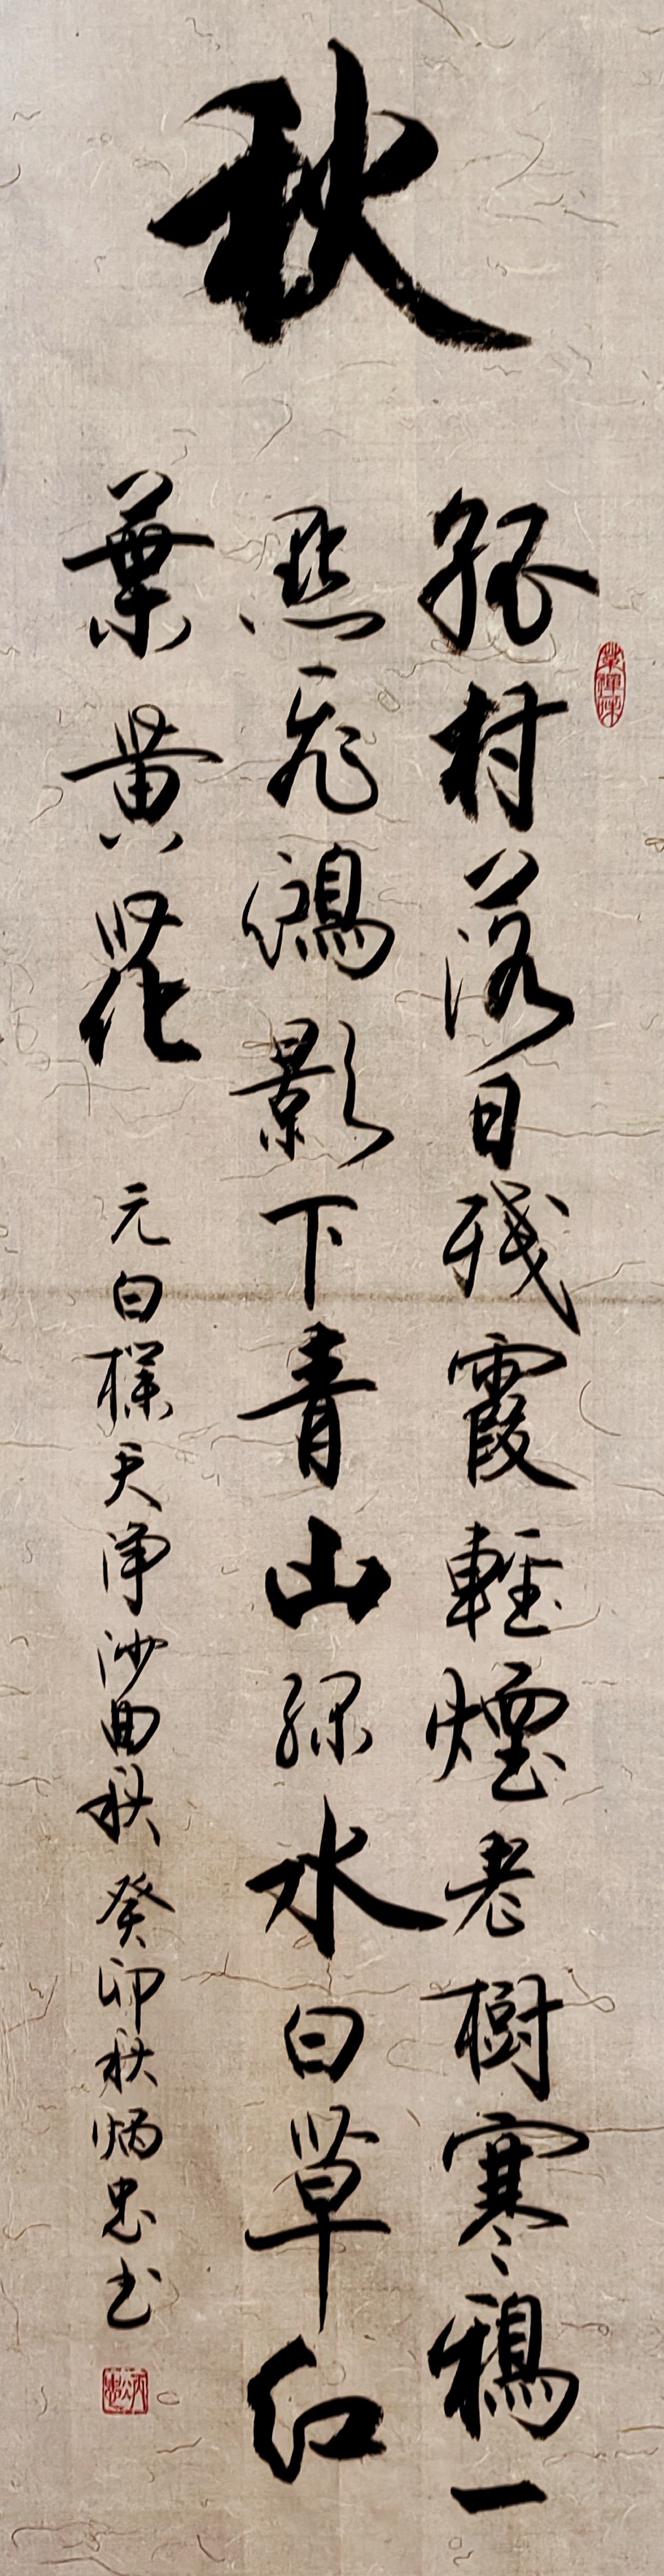 秋
孤村落日殘霞輕煙老樹寒鴉一
點飛鴻影下青山綠水白草紅
葉黄花
元白樸天淨沙曲秋 癸卯秋炳忠书